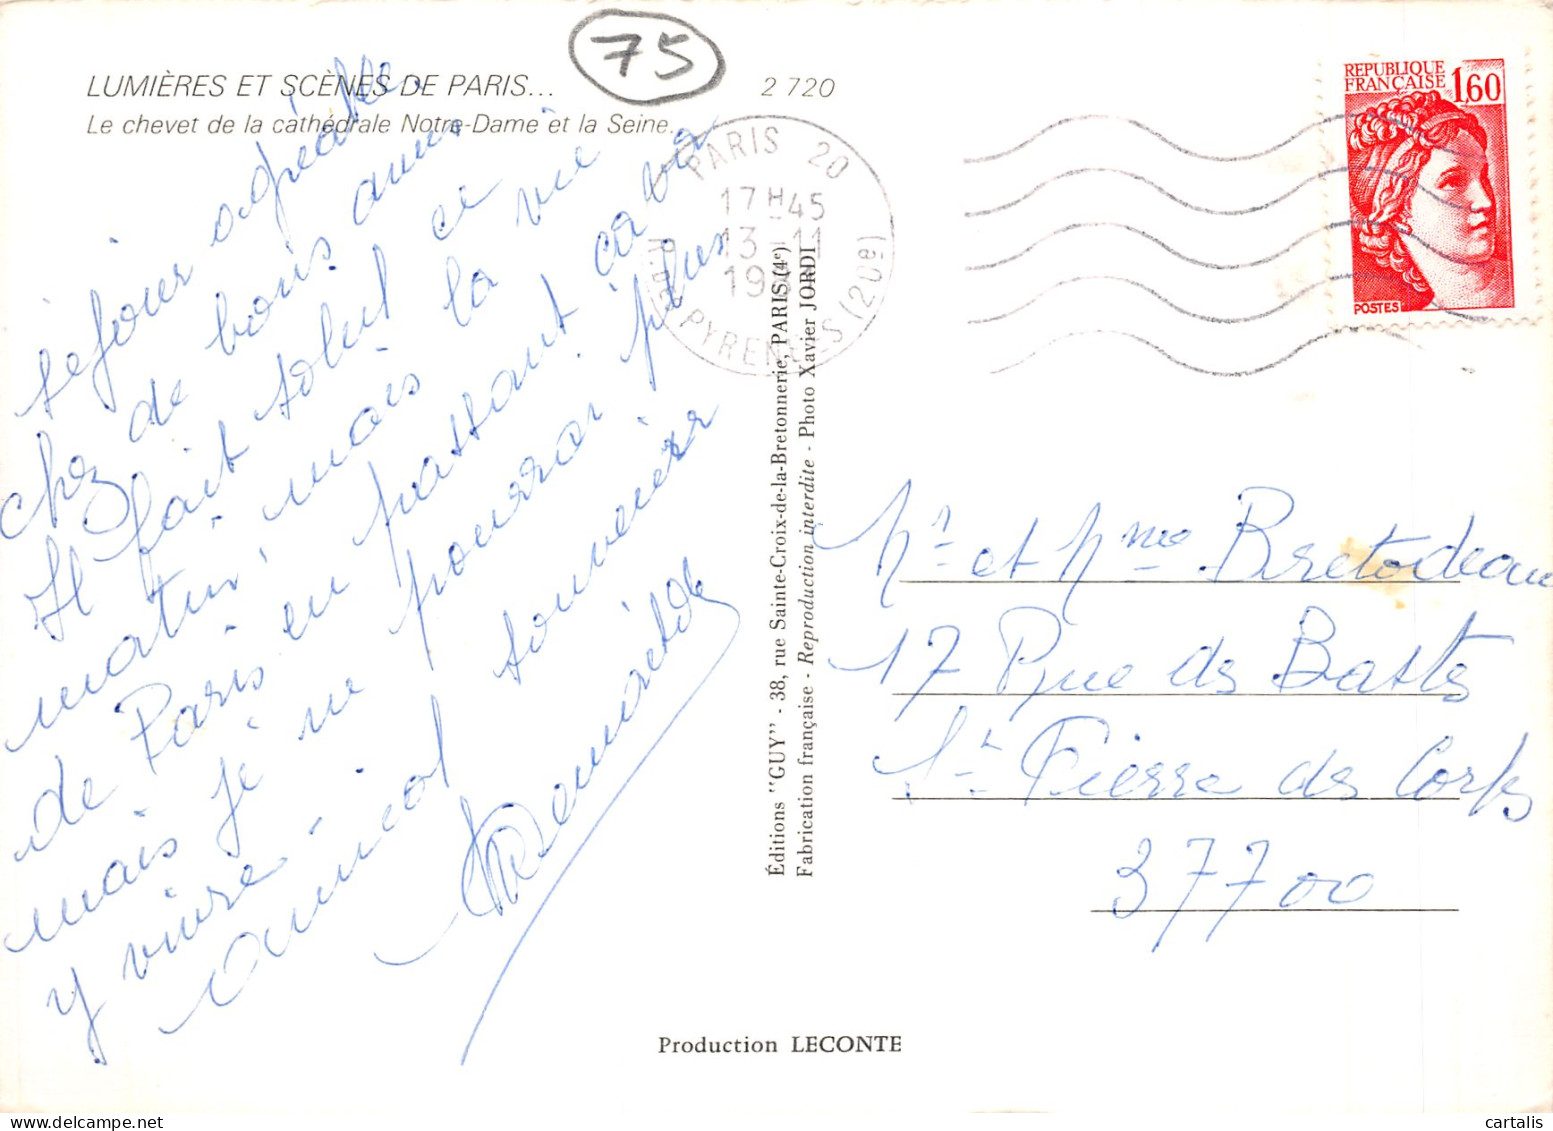 75
LUMIÈRES ET SCÈNES DE PARIS...
2 720
Le chevet de la cathédrale Notre-Dame et la Seine.
REPUBLIQUE
FRANÇAISE
1,60
POSTES
PARIS 20
17H45
13-11
R. DES PYRENEES (20e)
séjour agréable
chez de bons amis
Il fait soleil ce
matin mais la vie
de Paris en passant ça va
mais je ne pourrai plus
y vivre.
Amical souvenir
Éditions "GUY" - 38, rue Sainte-Croix-de-la-Bretonnerie, PARIS (4e)
Fabrication française - Reproduction interdite - Photo Xavier JORDI
Mr et Mme Bretodeau
17 Rue des Bastes
St Pierre des Corps
37700
Production LECONTE
cartalis